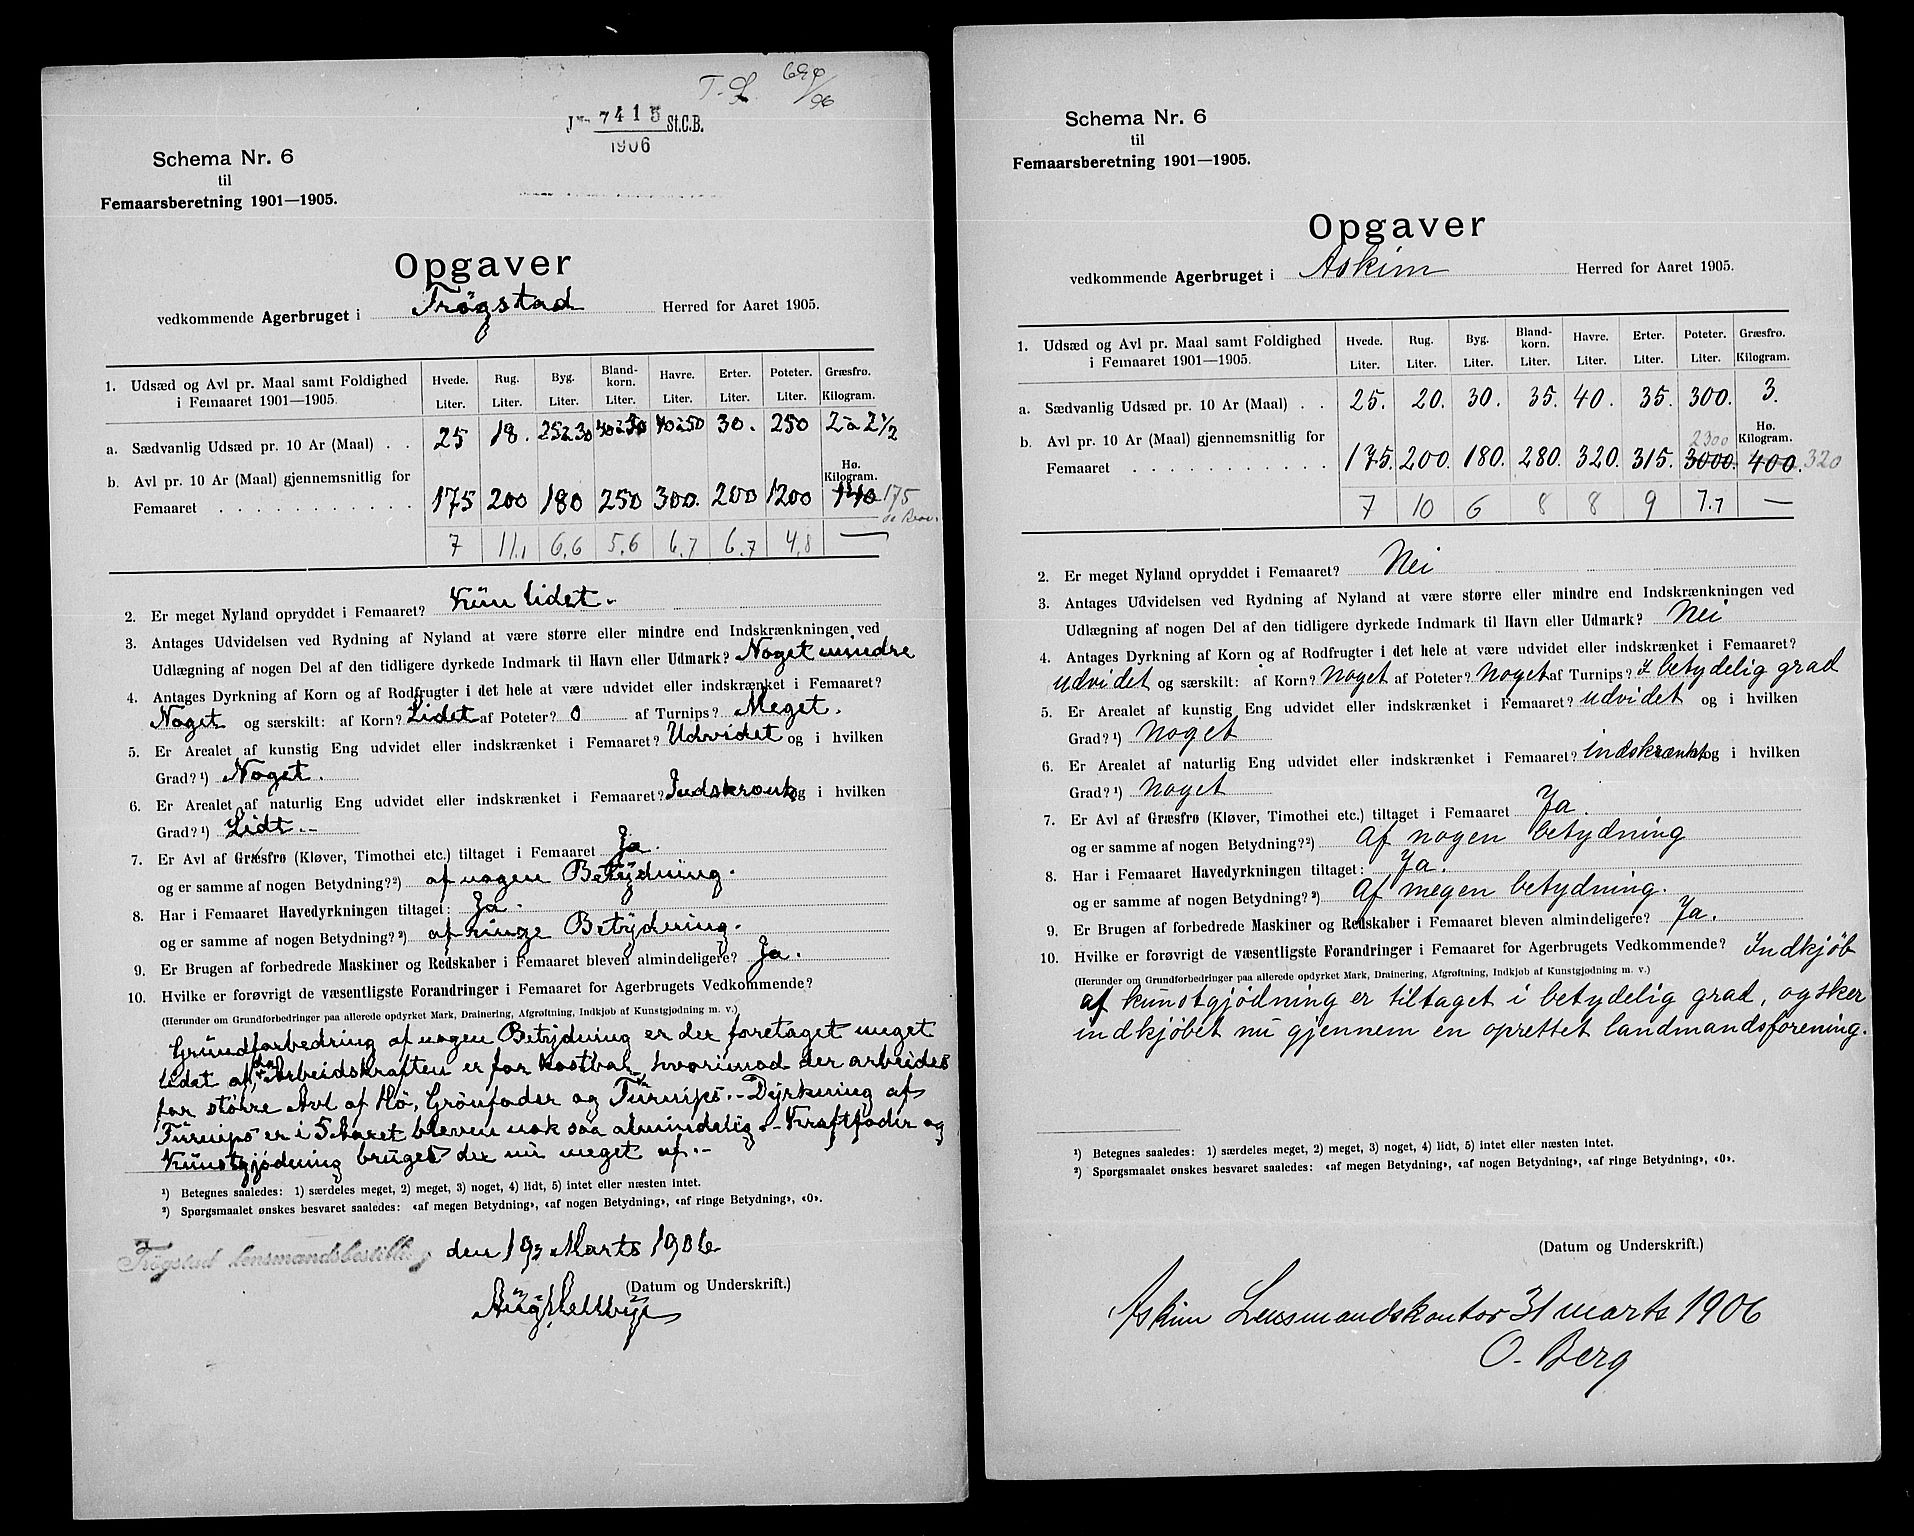 T. L.
J. No 7415 St.C.B.
1906
Schema Nr. 6
til
Femaarsberetning 1901—1905.
Opgaver
vedkommende Agerbruget i Trögstad Herred for Aaret 1905.
1. Udsæd og Avl pr. Maal samt Foldighed i Femaaret 1901—1905.
Hvede. Rug. Byg. Bland-korn. Havre. Erter. Poteter. Græsfrø.
Liter. Liter. Liter. Liter. Liter. Liter. Liter. Kilogram.
a. Sædvanlig Udsæd pr. 10 Ar (Maal) . . 25 18. 25à30 40à50 40à50 30. 250 2à2½
Hø.
Kilogram.
b. Avl pr. 10 Ar (Maal) gjennemsnitlig for
Femaaret . . . . . . . . . . . 175 200 180 250 300. 200 1200 140 175
7 11,1 6,6 5,6 6,7 6,7 4,8 —
2. Er meget Nyland opryddet i Femaaret? Kün lidet.-
3. Antages Udvidelsen ved Rydning af Nyland at være større eller mindre end Indskrænkningen ved
Udlægning af nogen Del af den tidligere dyrkede Indmark til Havn eller Udmark? Noget mindre
4. Antages Dyrkning af Korn og af Rodfrugter i det hele at være udvidet eller indskrænket i Femaaret?
Noget og særskilt: af Korn? Lidet af Poteter? 0 af Turnips? Meget.
5. Er Arealet af kunstig Eng udvidet eller indskrænket i Femaaret? Udvidet og i hvilken
Grad?¹) Noget.
6. Er Arealet af naturlig Eng udvidet eller indskrænket i Femaaret? Indskrænk og i hvilken
Grad?¹) Lidt.-
7. Er Avl af Græsfrø (Kløver, Timothei etc.) tiltaget i Femaaret Ja.
og er samme af nogen Betydning?²) af nogen Betÿdning.
8. Har i Femaaret Havedyrkningen tiltaget: Ja.
og er samme af nogen Betydning?²) af ringe Betÿdning.
9. Er Brugen af forbedrede Maskiner og Redskaber i Femaaret bleven almindeligere? Ja.
10. Hvilke er forøvrigt de væsentligste Forandringer i Femaaret for Agerbrugets Vedkommende?
(Herunder om Grundforbedringer paa allerede opdyrket Mark, Drainering, Afgrøftning, Indkjøb af Kunstgjødning m. v.)
Gründforbedring af nogen Betÿdning er der foretaget meget
lidet af, da Arbeidskraften er for kostbar, hvorimod der arbeides
for større Avl af Hö, Grönfoder og Türnips.- Dÿrkning af
Türnips er i 5 Aaret bleven nok saa almindelig.- Kraftfoder og
Künstgjødning bruges der nü meget af.-
¹) Betegnes saaledes: 1) særdeles meget, 2) meget, 3) noget, 4) lidt, 5) intet eller næsten intet.
²) Spørgsmaalet ønskes besvaret saaledes: «af megen Betydning», «af nogen Betydning», «af ringe Betydning», «0».
Trögstad lensmandsbestilling den 19 Marts 1906
(Datum og Underskrift.)
Schema Nr. 6
til
Femaarsberetning 1901—1905.
Opgaver
vedkommende Agerbruget i Askim Herred for Aaret 1905.
1. Udsæd og Avl pr. Maal samt Foldighed i Femaaret 1901—1905.
Hvede. Rug. Byg. Bland-korn. Havre. Erter. Poteter. Græsfrø.
Liter. Liter. Liter. Liter. Liter. Liter. Liter. Kilogram.
a. Sædvanlig Udsæd pr. 10 Ar (Maal) . . 25. 20. 30. 35. 40. 35. 300. 3.
Hø.
2300 Kilogram.
b. Avl pr. 10 Ar (Maal) gjennemsnitlig for
Femaaret . . . . . . . . . . . 175. 200. 180. 280. 320. 315. 3000. 400. 320
7 10 6 8 8 9 7.7 —
2. Er meget Nyland opryddet i Femaaret? Nei
3. Antages Udvidelsen ved Rydning af Nyland at være større eller mindre end Indskrænkningen ved
Udlægning af nogen Del af den tidligere dyrkede Indmark til Havn eller Udmark? Nei
4. Antages Dyrkning af Korn og af Rodfrugter i det hele at være udvidet eller indskrænket i Femaaret?
udvidet og særskilt: af Korn? Noget af Poteter? Noget af Turnips? I betydelig grad
5. Er Arealet af kunstig Eng udvidet eller indskrænket i Femaaret? udvidet og i hvilken
Grad?¹) Noget
6. Er Arealet af naturlig Eng udvidet eller indskrænket i Femaaret? indskrænket og i hvilken
Grad?¹) Noget
7. Er Avl af Græsfrø (Kløver, Timothei etc.) tiltaget i Femaaret Ja.
og er samme af nogen Betydning?²) Af nogen betydning
8. Har i Femaaret Havedyrkningen tiltaget: Ja.
og er samme af nogen Betydning?²) Af megen betydning.
9. Er Brugen af forbedrede Maskiner og Redskaber i Femaaret bleven almindeligere? Ja.
10. Hvilke er forøvrigt de væsentligste Forandringer i Femaaret for Agerbrugets Vedkommende? Indkjöb
(Herunder om Grundforbedringer paa allerede opdyrket Mark, Drainering, Afgrøftning, Indkjøb af Kunstgjødning m. v.)
af kunstgjödning er tiltaget i betydelig grad, og sker
indkjöbet nu gjennem en oprettet landmandsforening.
¹) Betegnes saaledes: 1) særdeles meget, 2) meget, 3) noget, 4) lidt, 5) intet eller næsten intet.
²) Spørgsmaalet ønskes besvaret saaledes: «af megen Betydning», «af nogen Betydning», «af ringe Betydning», «0».
(Datum og Underskrift.)
Askim Lensmandskontor 31 marts 1906
O. Berg